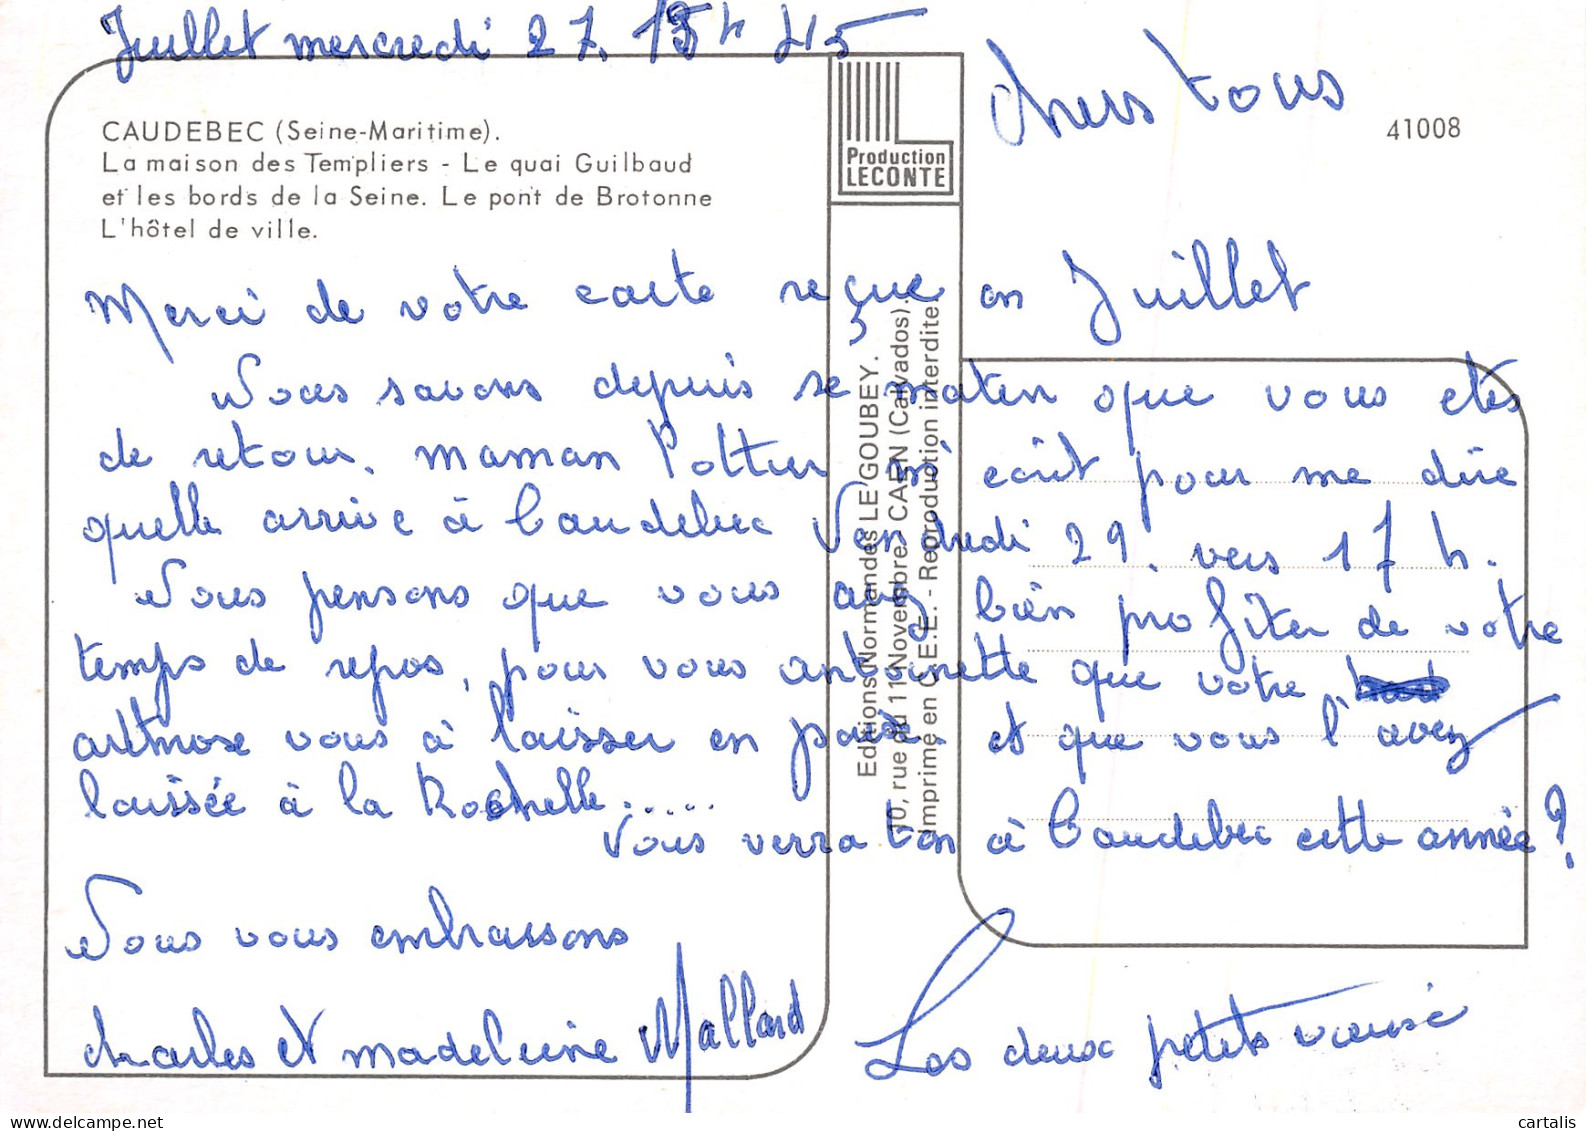 Juillet mercredi 27. 15h 45
chers tous
41008
CAUDEBEC (Seine-Maritime).
La maison des Templiers - Le quai Guilbaud
et les bords de la Seine. Le pont de Brotonne
L'hôtel de ville.
Production
LECONTE
Editions Normandes LE GOUBEY.
10, rue du 11 Novembre. CAEN (Calvados).
Imprimé en C.E.E. - Reproduction interdite
Merci de votre carte reçue en Juillet
Nous savons depuis se matin que vous etes
de retour. maman Pottier m'écrit pour me dire
quelle arrive à Caudebec Vendredi 29. vers 17 h.
Nous pensons que vous avez bien profiter de votre
temps de repos, pour vous antoinette que votre
artmose vous à laisser en paix. et que vous l'avez
laissée à la Rochelle.....
Vous verra ton à Caudebec cette année ?
Nous vous embrassons
charles et madeleine Mallard
Les deux petits vieux
cartalis